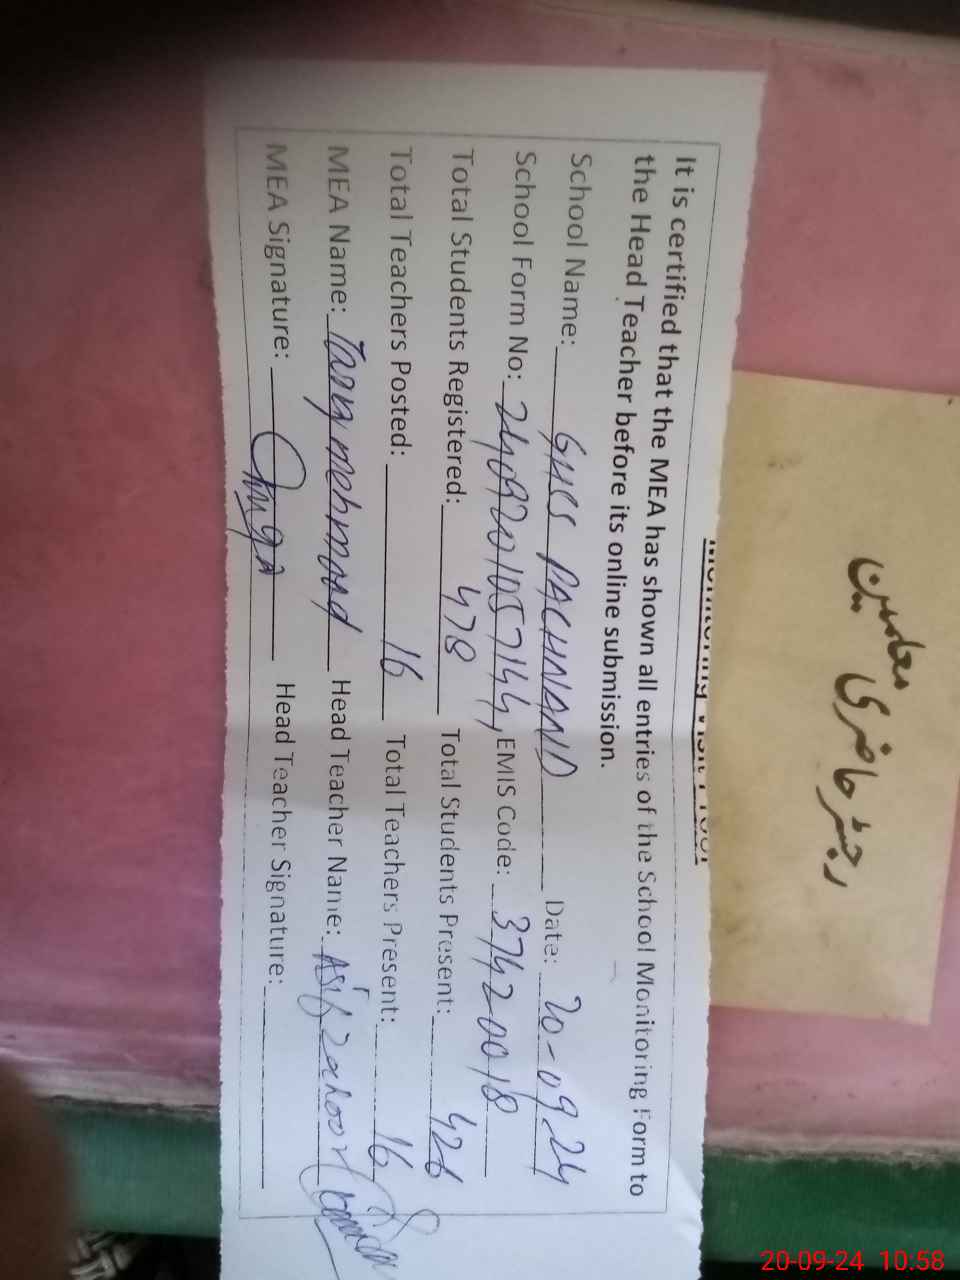 رجسٹر حاضری معلمین
Monitoring Visit Proof
It is certified that the MEA has shown all entries of the School Monitoring Form to
the Head Teacher before its online submission.
School Name: GHSS PACHNAND Date: 20-09-24
School Form No: EMIS Code: 37420018
Total Students Registered: 478 Total Students Present: 426
Total Teachers Posted: 16 Total Teachers Present: 16
MEA Name: Tariq mehmood Head Teacher Name: Asif zahoor
MEA Signature: Head Teacher Signature:
20-09-24 10:58